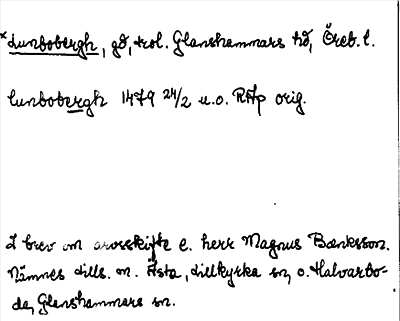 *Lunbobergh, gd, trol. Glanshammars hd, Öreb. l.
lunbobergh 1479 24/2 u.o. RAp orig.
I brev om arvsskifte e. herr Magnus Bænksson.
Nämnes tills. m. Åsta, Lillkyrka sn, o. Halvarbo-
da, Glanshammars sn.